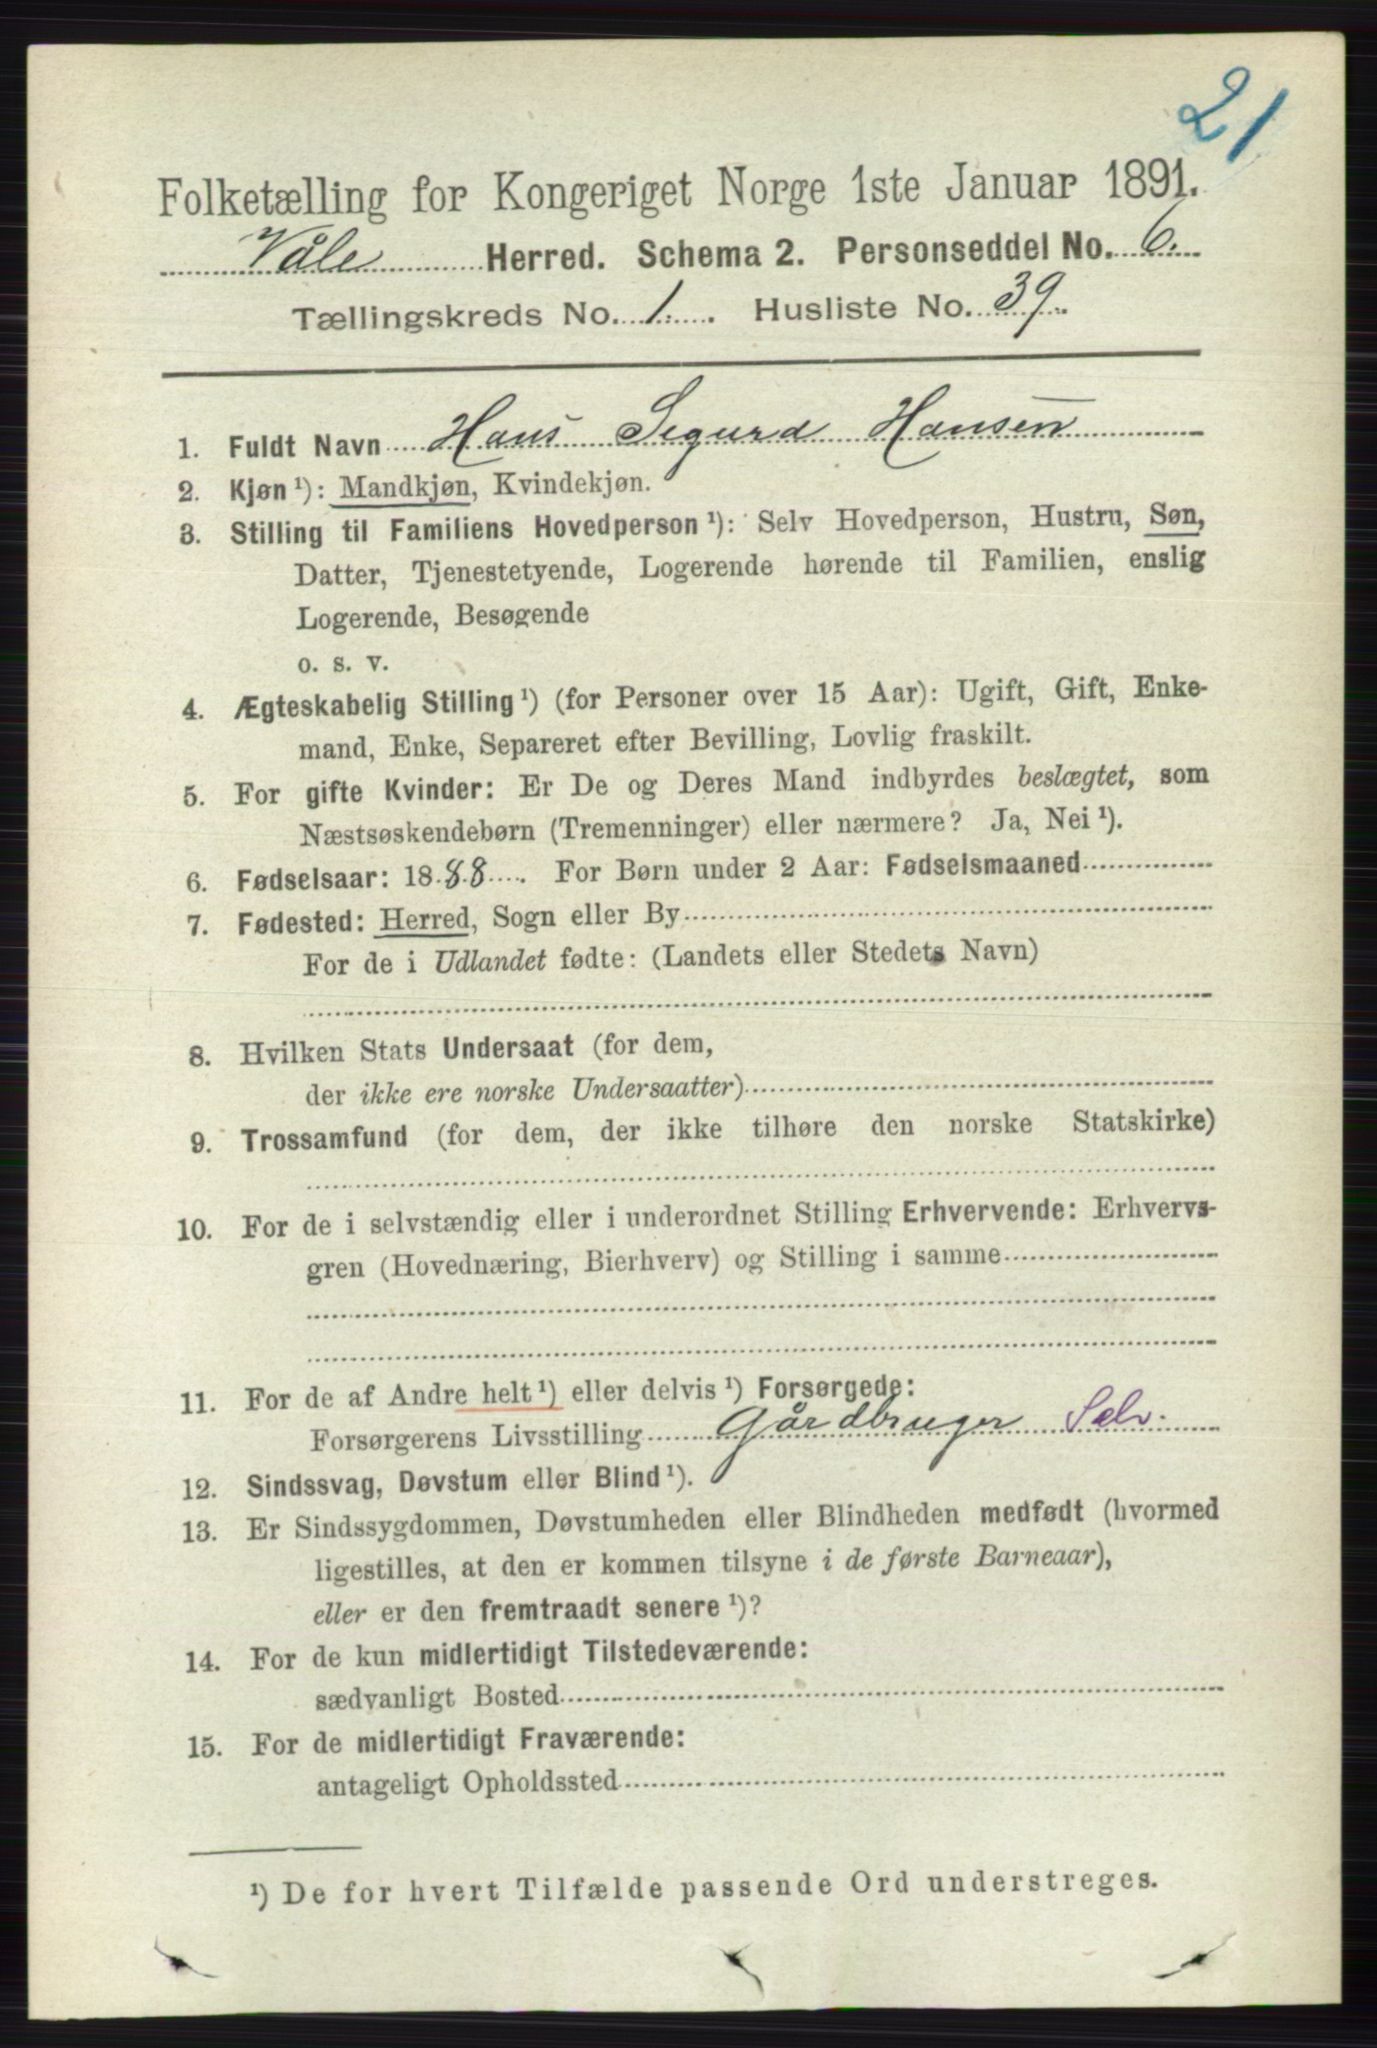 21
Folketælling for Kongeriget Norge 1ste Januar 1891.
Våle Herred. Schema 2. Personseddel No. 6.
Tællingskreds No. 1. Husliste No. 39.
1. Fuldt Navn Hans Sigurd Hansen
2. Kjøn ¹): Mandkjøn, Kvindekjøn.
3. Stilling til Familiens Hovedperson ¹): Selv Hovedperson, Hustru, Søn,
Datter, Tjenestetyende, Logerende hørende til Familien, enslig
Logerende, Besøgende
o. s. v.
4. Ægteskabelig Stilling ¹) (for Personer over 15 Aar): Ugift, Gift, Enke-
mand, Enke, Separeret efter Bevilling, Lovlig fraskilt.
5. For gifte Kvinder: Er De og Deres Mand indbyrdes beslægtet, som
Næstsøskendebørn (Tremenninger) eller nærmere? Ja, Nei ¹).
6. Fødselsaar: 1888. For Børn under 2 Aar: Fødselsmaaned
7. Fødested: Herred, Sogn eller By
For de i Udlandet fødte: (Landets eller Stedets Navn)
8. Hvilken Stats Undersaat (for dem,
der ikke ere norske Undersaatter)
9. Trossamfund (for dem, der ikke tilhøre den norske Statskirke)
10. For de i selvstændig eller i underordnet Stilling Erhvervende: Erhvervs-
gren (Hovednæring, Bierhverv) og Stilling i samme
11. For de af Andre helt ¹) eller delvis ¹) Forsørgede:
Forsørgerens Livsstilling Gårdbruger Selv.
12. Sindssvag, Døvstum eller Blind ¹).
13. Er Sindssygdommen, Døvstumheden eller Blindheden medfødt (hvormed
ligestilles, at den er kommen tilsyne i de første Barneaar),
eller er den fremtraadt senere ¹)?
14. For de kun midlertidigt Tilstedeværende:
sædvanligt Bosted
15. For de midlertidigt Fraværende:
antageligt Opholdssted
¹) De for hvert Tilfælde passende Ord understreges.